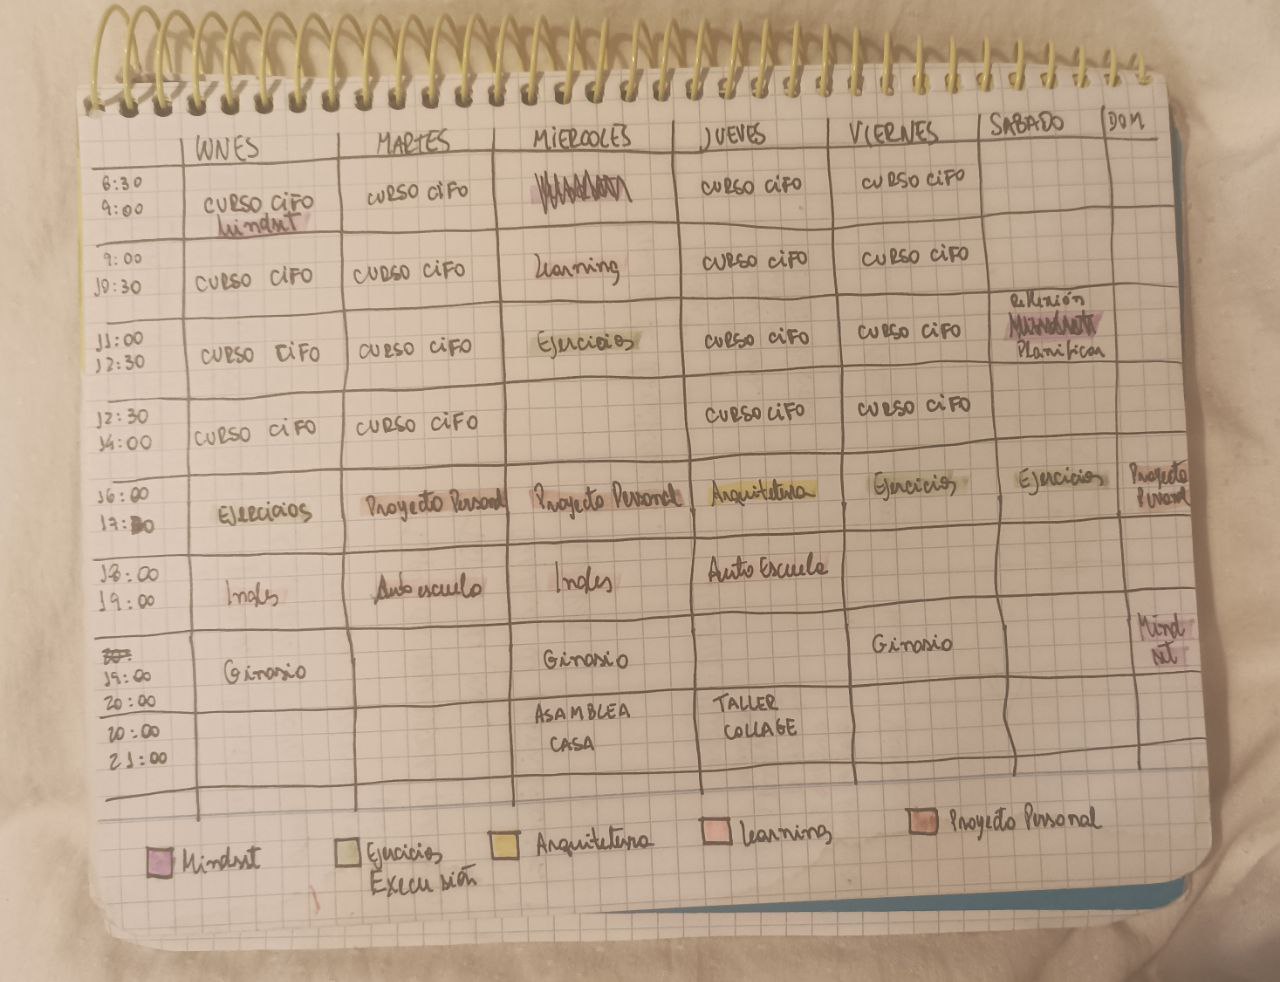 LUNES MARTES MIERCOLES JUEVES VIERNES SABADO DOM
8:30 CURSO CiFO CURSO CiFO CURSO CiFO CURSO CiFO
9:00 Mindset
9:00 CURSO CiFO CURSO CiFO Learning CURSO CiFO CURSO CiFO
10:30
11:00 CURSO CiFO CURSO CiFO Ejercicios CURSO CiFO CURSO CiFO Reflexión
12:30 Planificar
12:30 CURSO CiFO CURSO CiFO CURSO CiFO CURSO CiFO
14:00
16:00 Ejercicios Proyecto Personal Proyecto Personal Arquitetura Ejercicios Ejercicios Proyecto
17:30 Personal
18:00 Ingles Autoescuela Ingles Auto Escuela
19:00
19:00 Ginasio Ginasio Ginasio Mind
20:00 set
20:00 ASAMBLEA TALLER
21:00 CASA COLLAGE
Mindset Ejercicios Arquitetura Learning Proyecto Personal
EXECUSIÓN